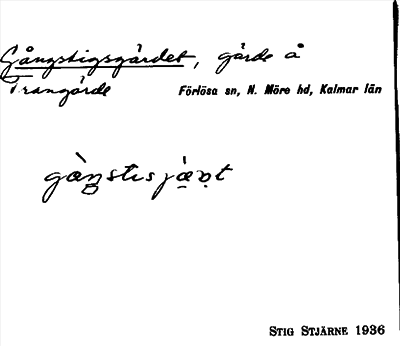 Gångstigsgärdet, gärde å
Trangärde
Förlösa sn, N. Möre hd, Kalmar län
STIG STJÄRNE 1936